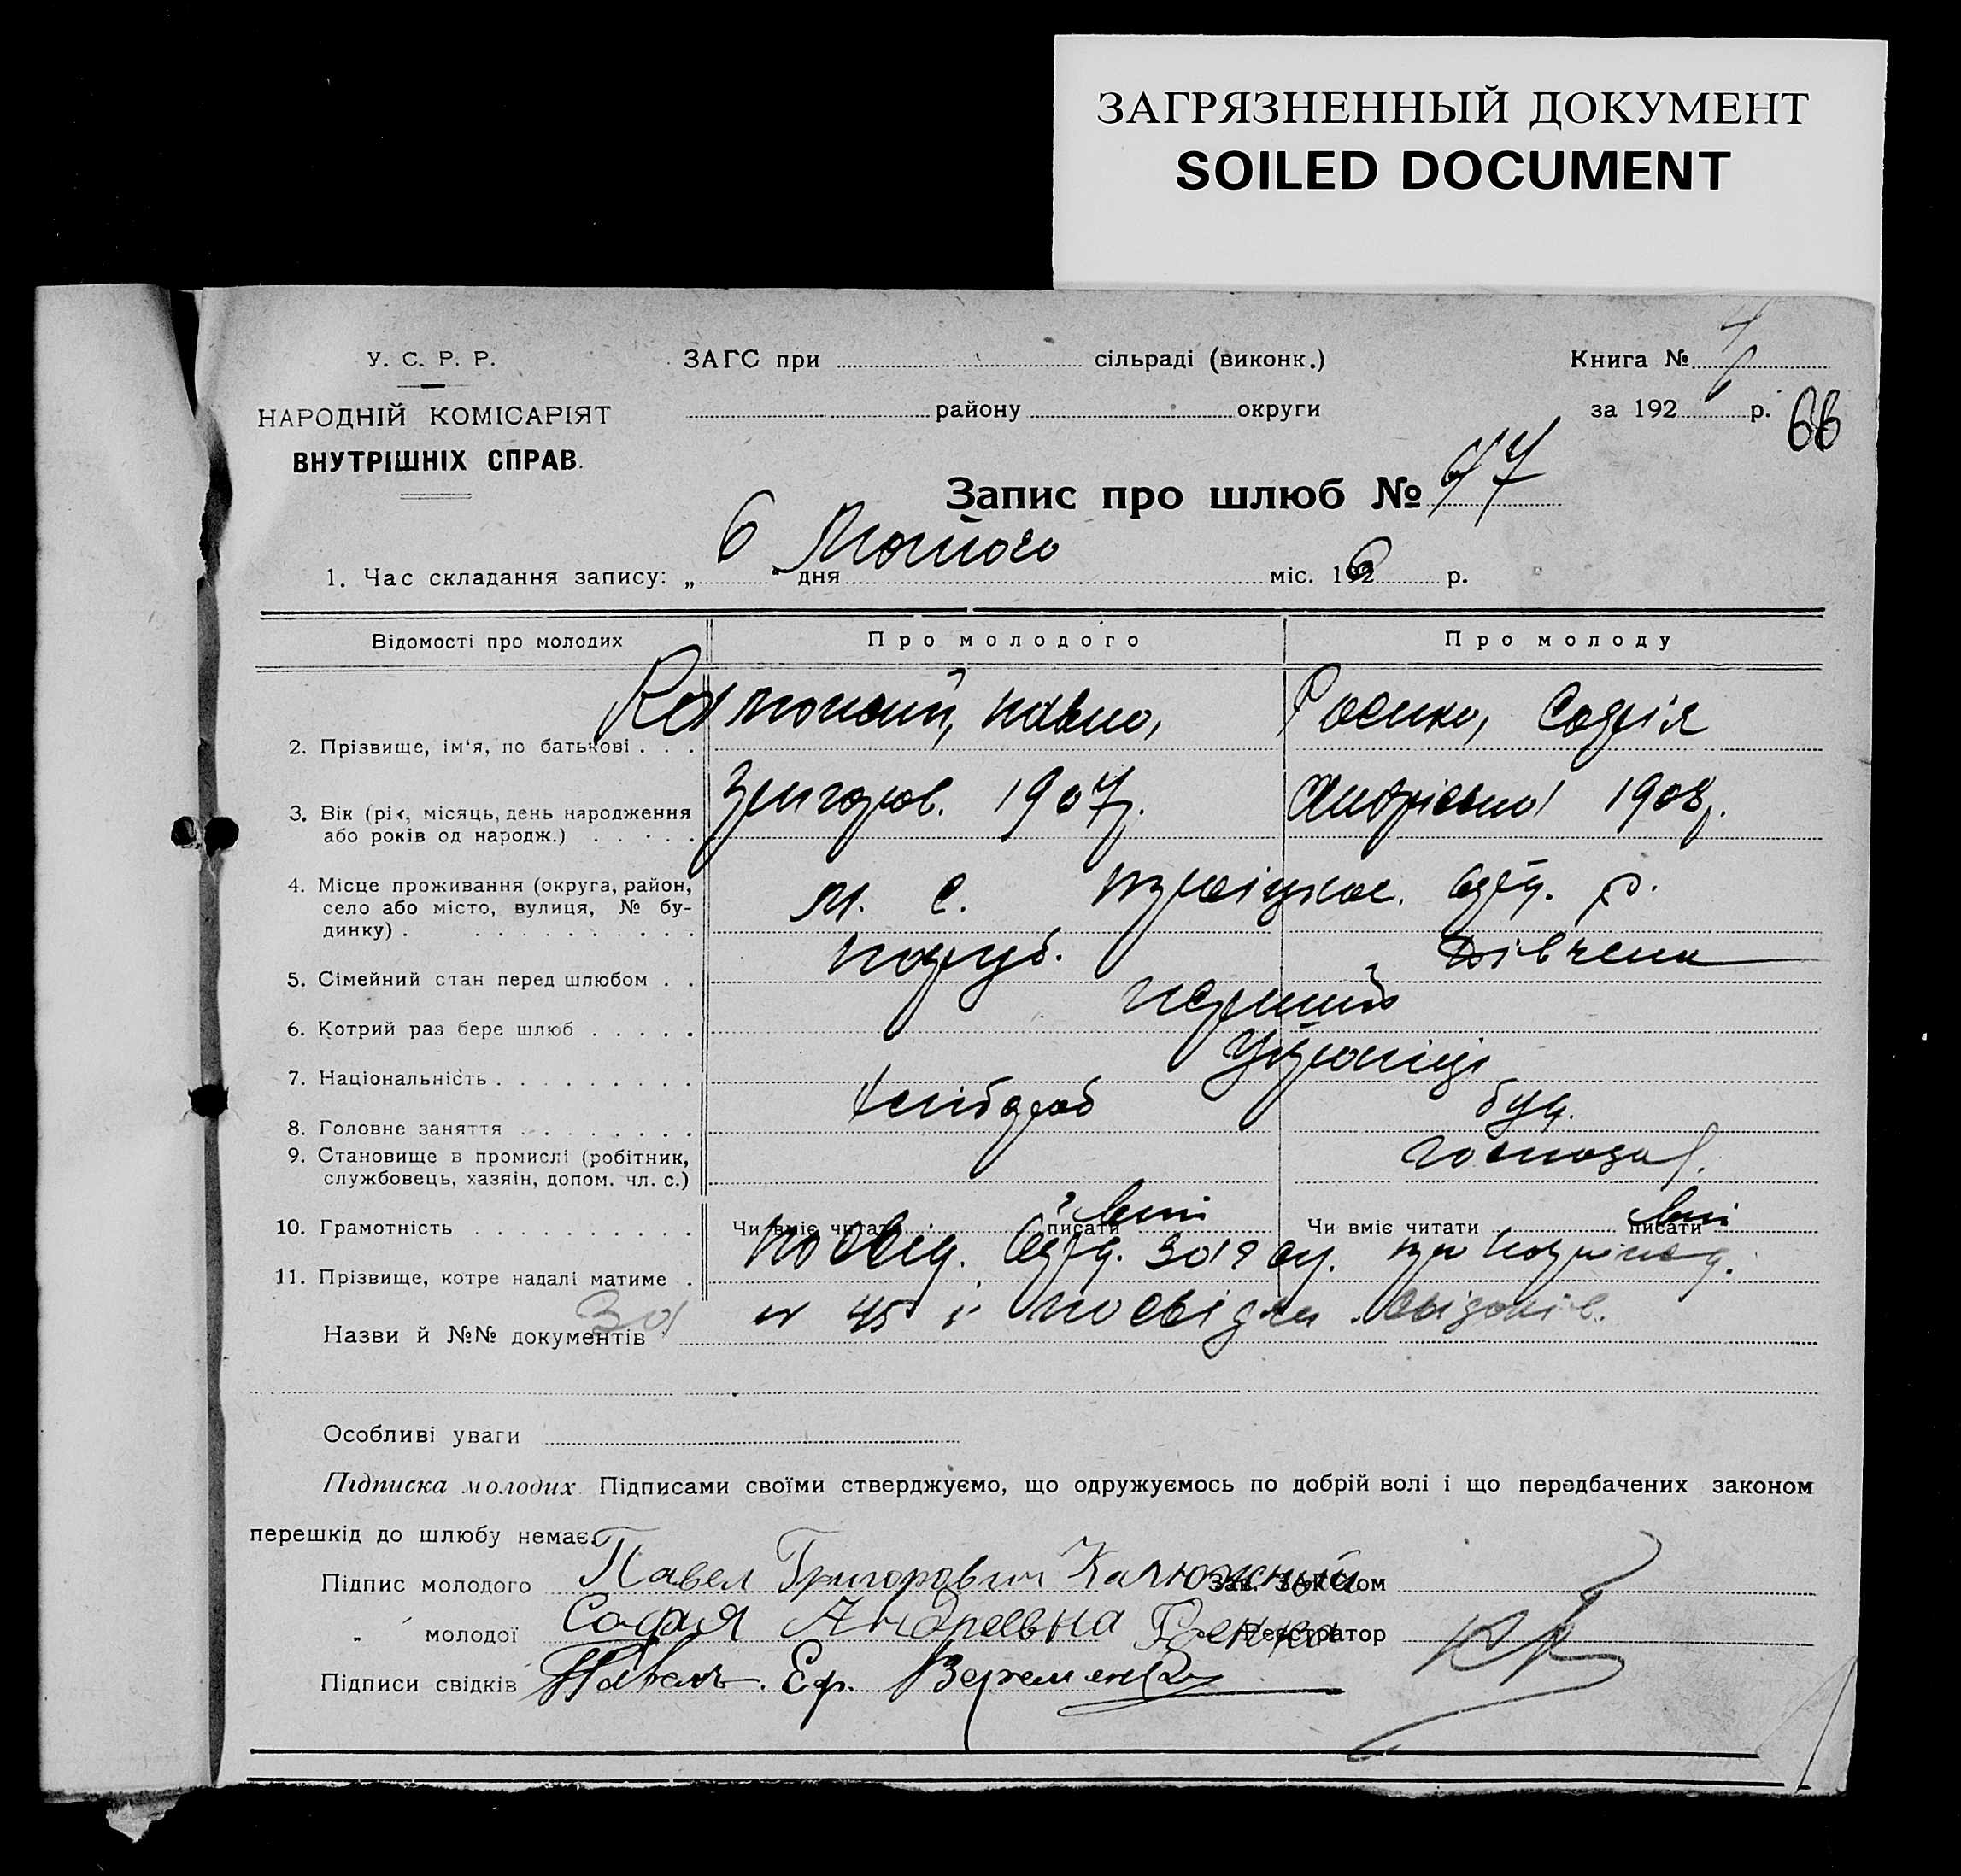 ЗАГРЯЗНЕННЫЙ ДОКУМЕНТ
SOILED DOCUMENT
У. С. Р. Р.
НАРОДНІЙ КОМІСАРІЯТ
ВНУТРІШНІХ СПРАВ.
ЗАГС при сільраді (виконк.)
району округи
Книга №
за 192 р. 66
Запис про шлюб №
1. Час складання запису: „ 6 " дня Лютого міс. 1926 р.
Відомості про молодих Про молодого Про молоду
2. Прізвище, ім'я, по батькові . . . Калюжний, Павло, Софія
3. Вік (рік, місяць, день народження або років од народж.) . . . . . Григоров. 1907р. Андріевна 1908р.
4. Місце проживання (округа, район, село або місто, вулиця, № будинку) . . . . . . . . . . . м. с.
5. Сімейний стан перед шлюбом . . паруб. Дівчена
6. Котрий раз бере шлюб . . . . . перший
7. Національність . . . . . . . . . Українці
8. Головне заняття . . . . . . . .
9. Становище в промислі (робітник, службовець, хазяін, допом. чл. с.) господ.
10. Грамотність . . . . . . . . . . Чи вміє читати писати Чи вміє читати писати
11. Прізвище, котре надалі матиме .
Назви й №№ документів № 45 і посвідки свідків.
Особливі уваги
Підписка молодих Підписами своїми стверджуємо, що одружуємось по добрій волі і що передбачених законом
перешкід до шлюбу немає.
Підпис молодого Павел Григорович Калюжный Зав. ЗАГС'ом
" молодої София Андреевна Реєстратор
Підписи свідків Павелъ. Еф. Веремеенко